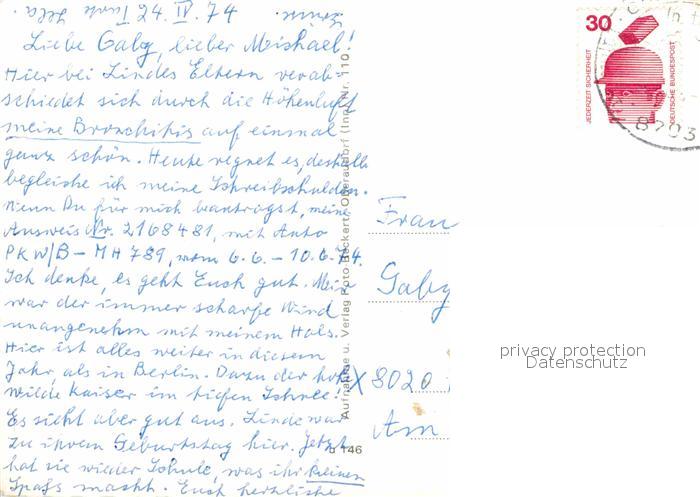 24. IV. 74
Liebe Gaby, lieber Michael!
Hier bei Lindes Eltern verab-
schiedet sich durch die Höhenluft
meine Bronchitis auf einmal
ganz schön. Heute regnet es, deshalb
begleiche ich meine Schreibschulden.
Wenn Du für mich beantragst, meine
Ausweis Nr. 2168481, mit Auto
PKW/B-MH 789, vom 6.6. - 10.6.74.
Ich denke, es geht Euch gut. Mein
war der immer scharfe Wind
unangenehm mit meinem Hals.
Hier ist alles weiter in diesem
Jahr, als in Berlin. Dazu der
wilde Kaiser im tiefen Schnee!
Es sieht aber gut aus. Linde war
zu ihrem Geburtstag hier. Jetzt
hat sie wieder Schule, was ihr keinen
Spaß macht. Euch herzliche
Aufnahme u. Verlag Foto Beckert, Oberaudorf (Inn) Nr. 110
b 146
Frau
Gaby
X 8020
Am
30
JEDERZEIT SICHERHEIT
DEUTSCHE BUNDESPOST
8203
privacy protection
Datenschutz